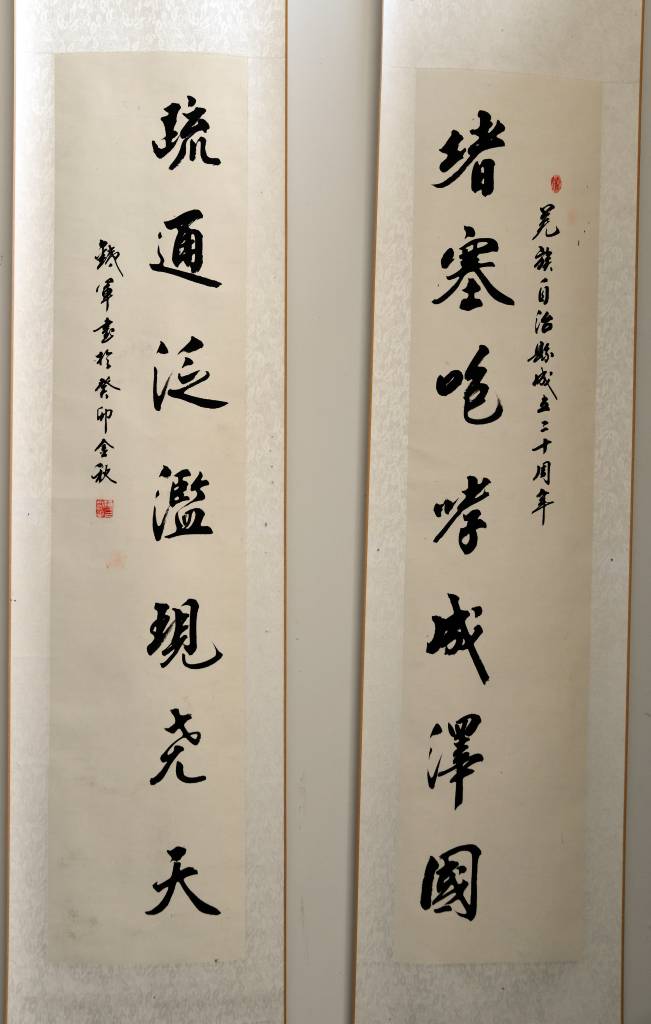 羌族自治縣成立二十周年
堵塞咆哮成澤國
疏通泛濫現尧天
鐵軍書於癸卯金秋